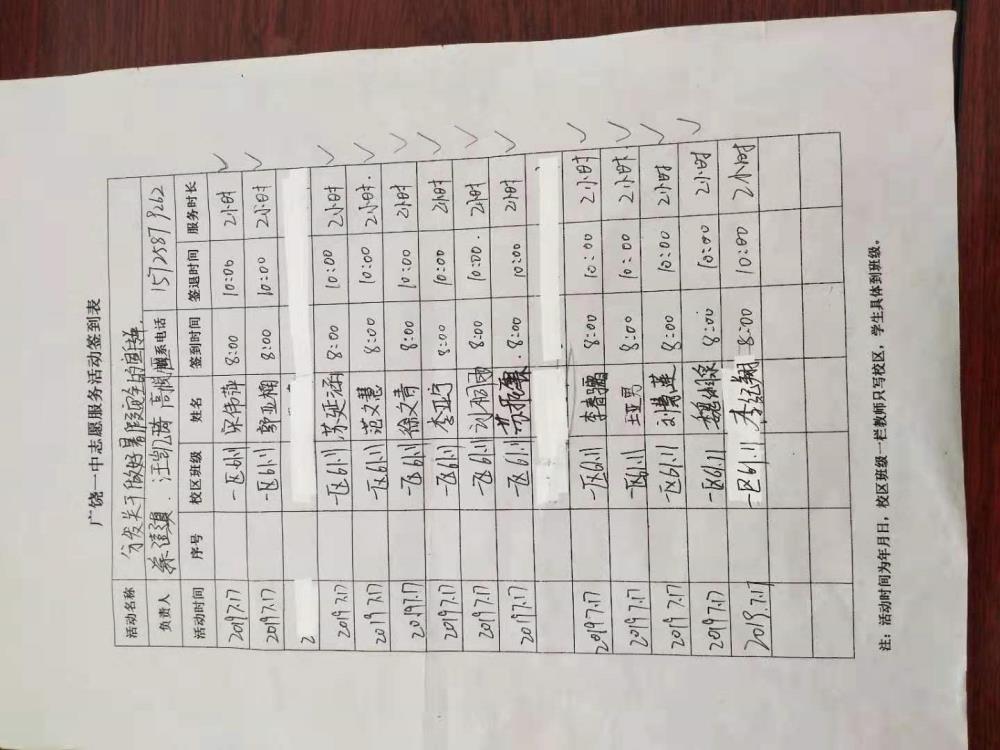 广饶一中志愿服务活动签到表
活动名称 分发关于做好暑假安全的宣传单.
负责人 汪凯 联系电话 15725879262
活动时间 序号 校区班级 姓名 签到时间 签退时间 服务时长
2019.7.17 一区61.11 宋伟萍 8:00 10:00 2小时 ✓
2019.7.17 一区61.11 郭亚楠 8:00 10:00 2小时 ✓
2
2019.7.17 一区61.11 苏延涵 8:00 10:00 2小时 ✓
2019.7.17 一区61.11 范文慧 8:00 10:00 2小时. ✓
2019.7.17 一区61.11 徐文奇 8:00 10:00 2小时 ✓
2019.7.17 一区61.11 李亚宁 8:00 10:00 2小时 ✓
2019.7.17 一区61.11 刘桐雨 8:00 10:00. 2小时 ✓
2019.7.17 一区61.11 8:00 10:00 2小时 ✓
2019.7.17 一区61.11 李春骊 8:00 10:00 2小时 ✓
2019.7.17 一区61.11 8:00 10:00 2小时 ✓
2019.7.17 一区61.11 8:00 10:00 2小时 ✓
2019.7.17 一区61.11 8:00 10:00 2小时 ✓
2019.7.17 一区61.11 李纪翔 8:00 10:00 2小时
注：活动时间为年月日，校区班级一栏教师只写校区，学生具体到班级。